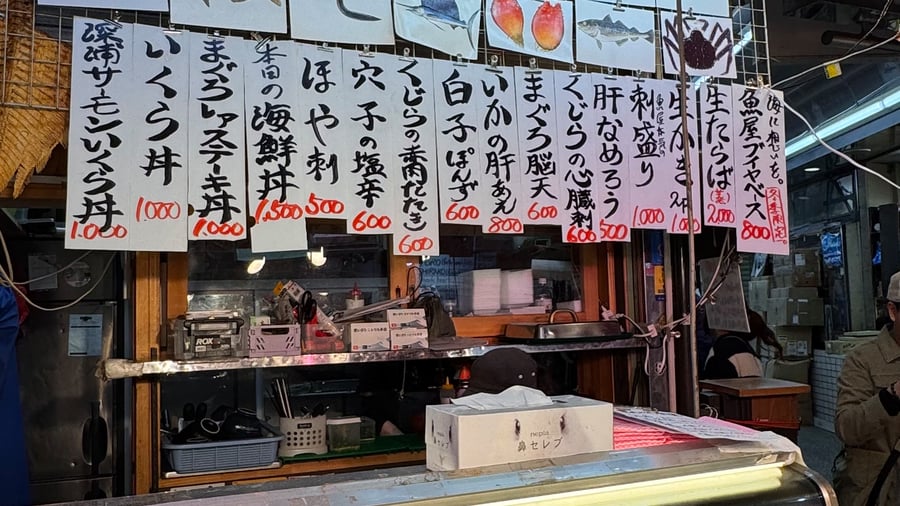 海に相談いを。
魚屋ブイヤベース
800
生たらば(姜)
2,000
生かき
刺盛り
1,000
肝なめろう
500
くじらの心臓刺
600
まぐろ脳天
600
いかの肝あえ
800
白子ぽんず
600
くじらの希肉たたき
600
穴子の塩辛
600
ほや刺
500
本日の海鮮丼
1,500
まぐろレアステーキ丼
1,000
いくら丼
1000
深浦サーモンいくら丼
1,000
ROX
nepia
鼻セレブ